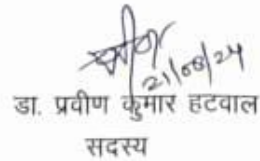 21/08/24
डा. प्रवीण कुमार हटवाल
सदस्य